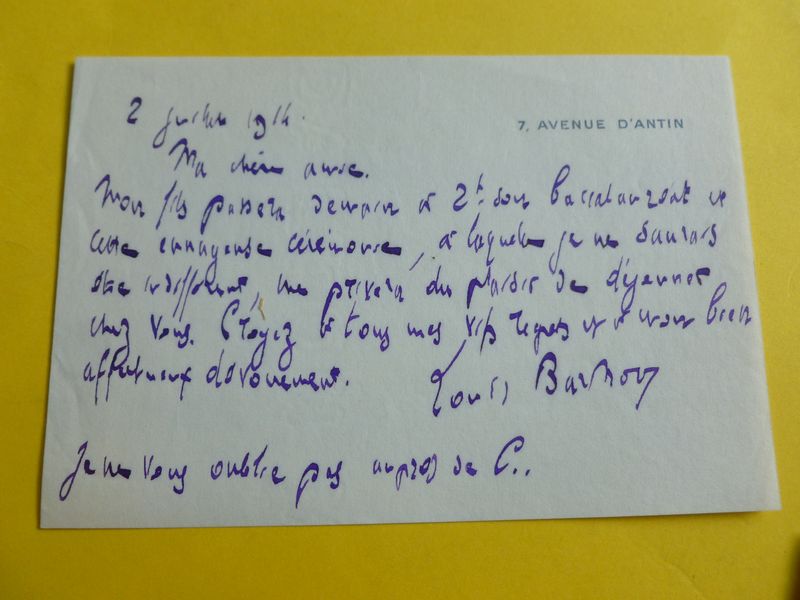 7, AVENUE D'ANTIN
2 juillet 1914.
Ma chère amie.
Mon fils passera demain à 2h. son baccalauréat et
cette ennuyeuse cérémonie, à laquelle je ne saurais
être indifférent, me privera du plaisir de déjeuner
chez vous. Croyez à tous mes vifs regrets et à mon bien
affectueux dévouement.
Louis Barthou
Je ne vous oublie pas auprès de C..